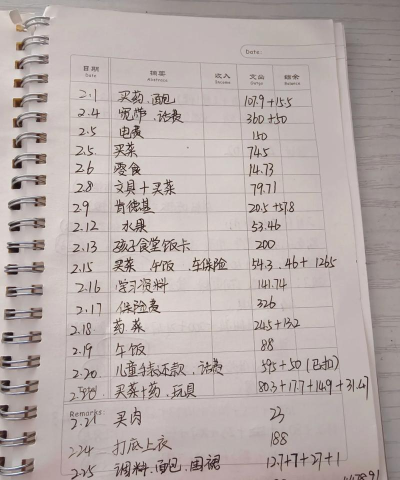 Date:
日期 摘要 收入 支出 结余
Date Abstracts Income Outgo Balance
2.1 买药、面包 107.9+15.5
2.4 宽带、话费 360+50
2.5 电费 150
2.5 买菜 74.5
2.6 零食 14.73
2.8 文具+买菜 79.71
2.9 肯德基 20.5+57.8
2.12 水果 53.46
2.13 孩子食堂饭卡 200
2.15 买菜 午饭、车保险 54.3、46+1265
2.16 学习资料 141.74
2.17 保险费 326
2.18 药 菜 245+132
2.19 午饭 88
2.20 儿童手表还款、话费 595+50(已扣)
买菜+药、玩具 80.3+17.7+149+31.47
Remarks:
2.21 买肉 23
2.24 打底上衣 188
2.25 调料、面包、 12.7+7+27+1